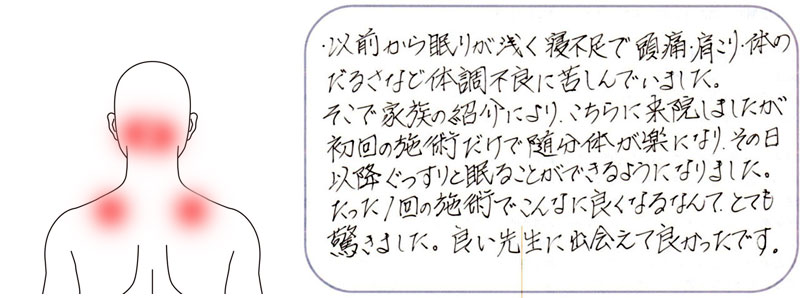 ・以前から眠りが浅く寝不足で頭痛・肩こり・体の
だるさなど体調不良に苦しんでいました。
そこで家族の紹介により、こちらに来院しましたが
初回の施術だけで随分体が楽になり、その日
以降ぐっすりと眠ることができるようになりました。
たった1回の施術でこんなに良くなるなんて、とても
驚きました。良い先生に出会えて良かったです。